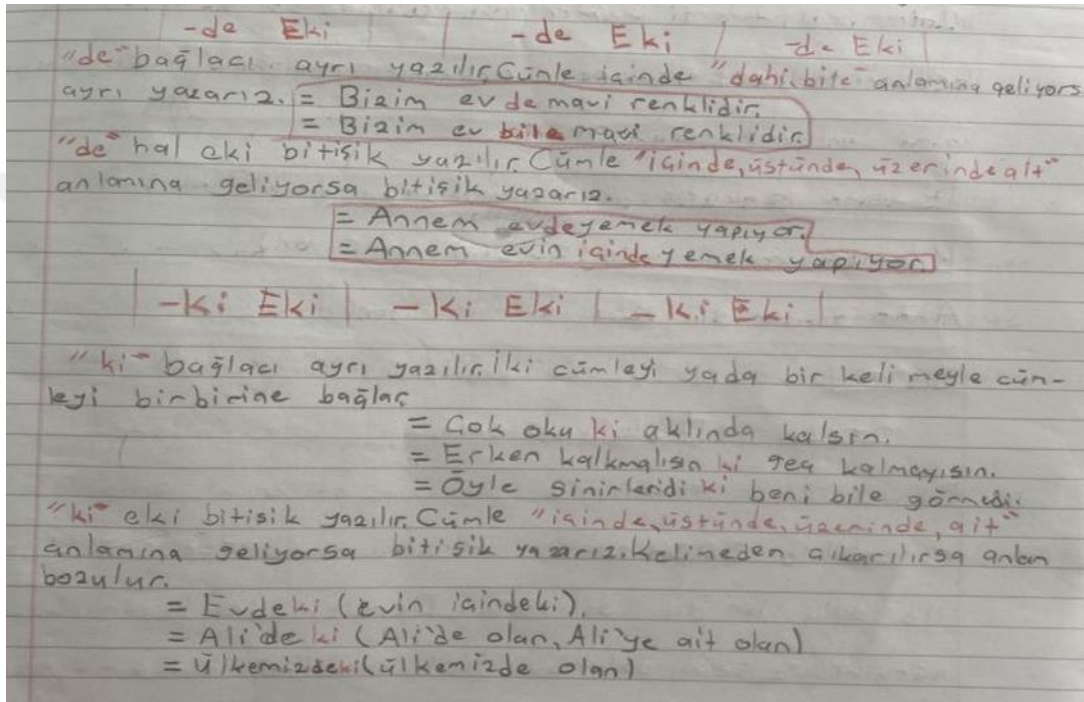 -de Eki | -de Eki | -de Eki |
"de" bağlacı ayrı yazılır. Cümle içinde "dahi, bile" anlamına geliyors
ayrı yazarız. = Bizim ev de mavi renklidir.
= Bizim ev bile mavi renklidir.
"de" hal eki bitişik yazılır. Cümle "içinde, üstünde, üzerinde ait"
anlamına geliyorsa bitişik yazarız.
= Annem evde yemek yapıyor.
= Annem evin içinde yemek yapıyor.
| -ki Eki | -ki Eki | -ki Eki |
"ki" bağlacı ayrı yazılır. İki cümleyi yada bir kelimeyle cün-
leyi birbirine bağlar
= Çok oku ki aklında kalsın.
= Erken kalkmalısın ki geç kalmayısın.
= Öyle sinirleridi ki beni bile görmedi.
"ki" eki bitişik yazılır. Cümle "içinde, üstünde, üzerinde, ait"
anlamına geliyorsa bitişik yazarız. Kelimeden çıkarılırsa anlam
bozulur.
= Evdeki (evin içindeki).
= Ali'de ki (Ali'de olan, Ali'ye ait olan)
= ülkemizdeki (ülkemizde olan)